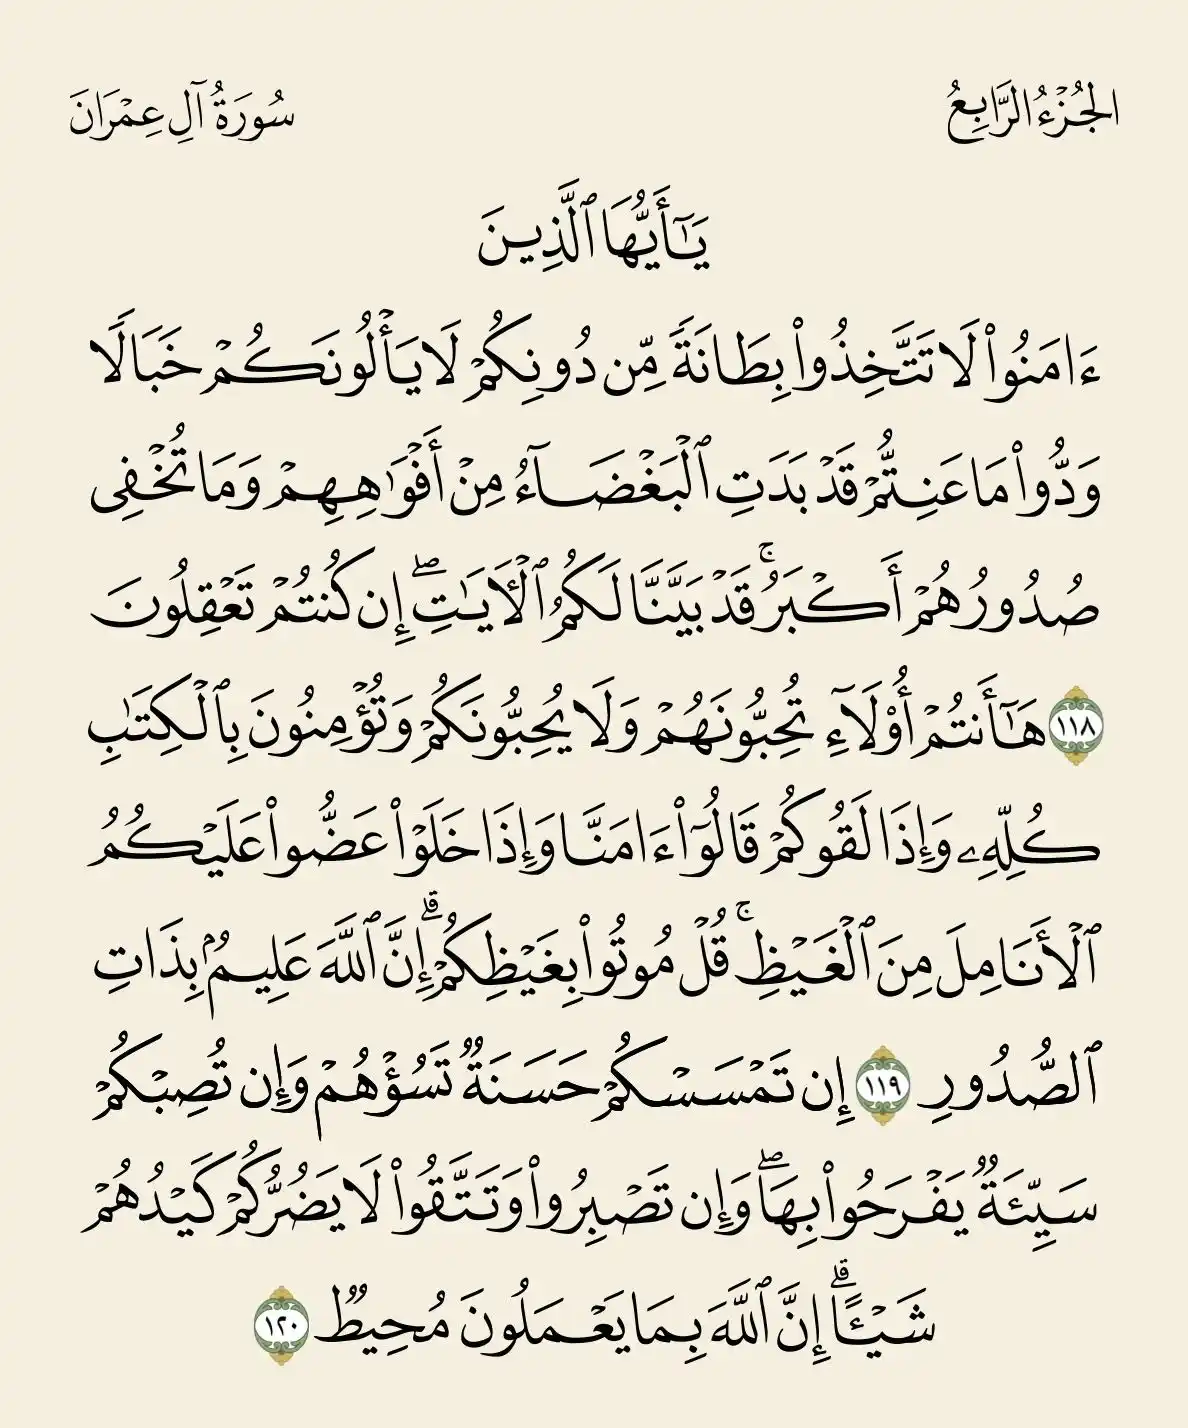 الجُزْءُ الرَّابِعُ
سُورَةُ آلِ عِمْرَانَ
يَـٰٓأَيُّهَا ٱلَّذِينَ
ءَامَنُوا۟ لَا تَتَّخِذُوا۟ بِطَانَةً مِّن دُونِكُمْ لَا يَأْلُونَكُمْ خَبَالًا
وَدُّوا۟ مَا عَنِتُّمْ قَدْ بَدَتِ ٱلْبَغْضَآءُ مِنْ أَفْوَٰهِهِمْ وَمَا تُخْفِى
صُدُورُهُمْ أَكْبَرُ ۚ قَدْ بَيَّنَّا لَكُمُ ٱلْـَٔايَـٰتِ ۖ إِن كُنتُمْ تَعْقِلُونَ
١١٨ هَـٰٓأَنتُمْ أُو۟لَآءِ تُحِبُّونَهُمْ وَلَا يُحِبُّونَكُمْ وَتُؤْمِنُونَ بِٱلْكِتَـٰبِ
كُلِّهِۦ وَإِذَا لَقُوكُمْ قَالُوٓا۟ ءَامَنَّا وَإِذَا خَلَوْا۟ عَضُّوا۟ عَلَيْكُمُ
ٱلْأَنَامِلَ مِنَ ٱلْغَيْظِ ۚ قُلْ مُوتُوا۟ بِغَيْظِكُمْ ۗ إِنَّ ٱللَّهَ عَلِيمٌۢ بِذَاتِ
ٱلصُّدُورِ ١١٩ إِن تَمْسَسْكُمْ حَسَنَةٌ تَسُؤْهُمْ وَإِن تُصِبْكُمْ
سَيِّئَةٌ يَفْرَحُوا۟ بِهَا ۖ وَإِن تَصْبِرُوا۟ وَتَتَّقُوا۟ لَا يَضُرُّكُمْ كَيْدُهُمْ
شَيْـًٔا ۗ إِنَّ ٱللَّهَ بِمَا يَعْمَلُونَ مُحِيطٌ ١٢٠